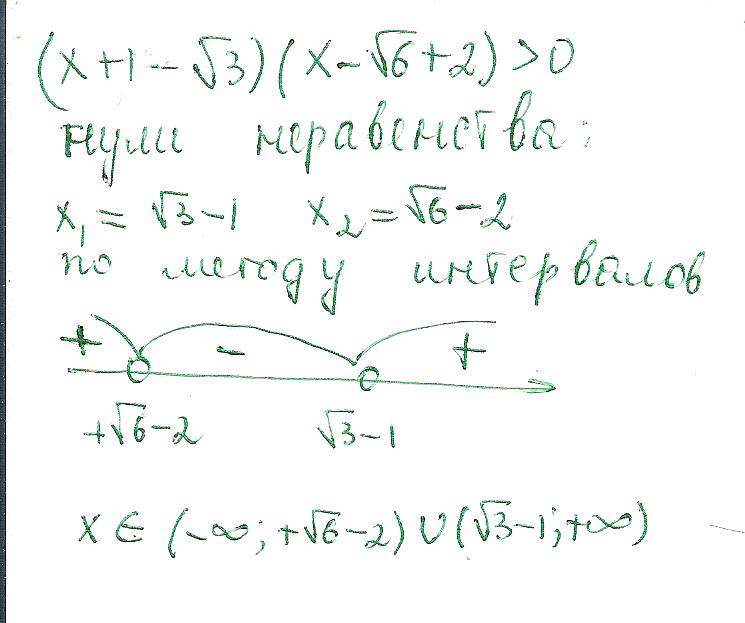 (x+1-√3)(x-√6+2)>0
нули неравенства:
x₁ = √3-1 x₂=√6-2
по методу интервалов
+ - +
+√6-2 √3-1
x ∈ (-∞; +√6-2) ∪ (√3-1; +∞)